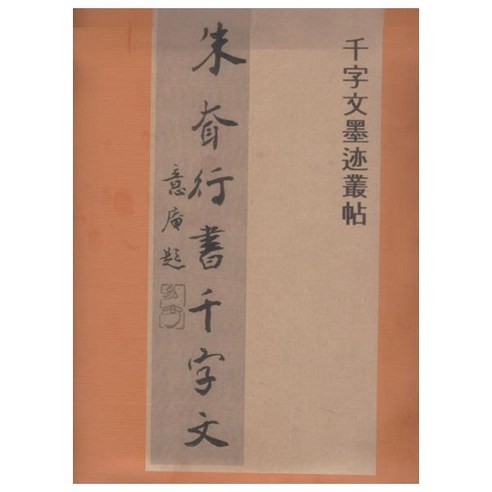 千字文墨迹叢帖
朱耷行書千字文
意庵题